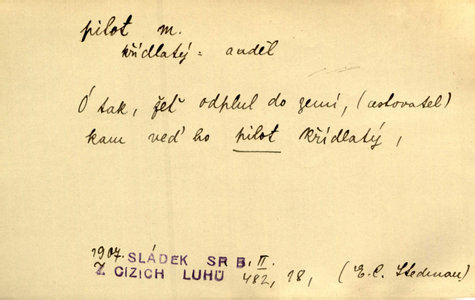 pilot m.
křídlatý = anděl
Ó tak, žeť odplul do zemí, (cestovatel)
kam veď ho pilot křídlatý,
1907. SLÁDEK SR B. II.
Z CIZICH LUHŮ 482, 18, (E. C. Stedman)